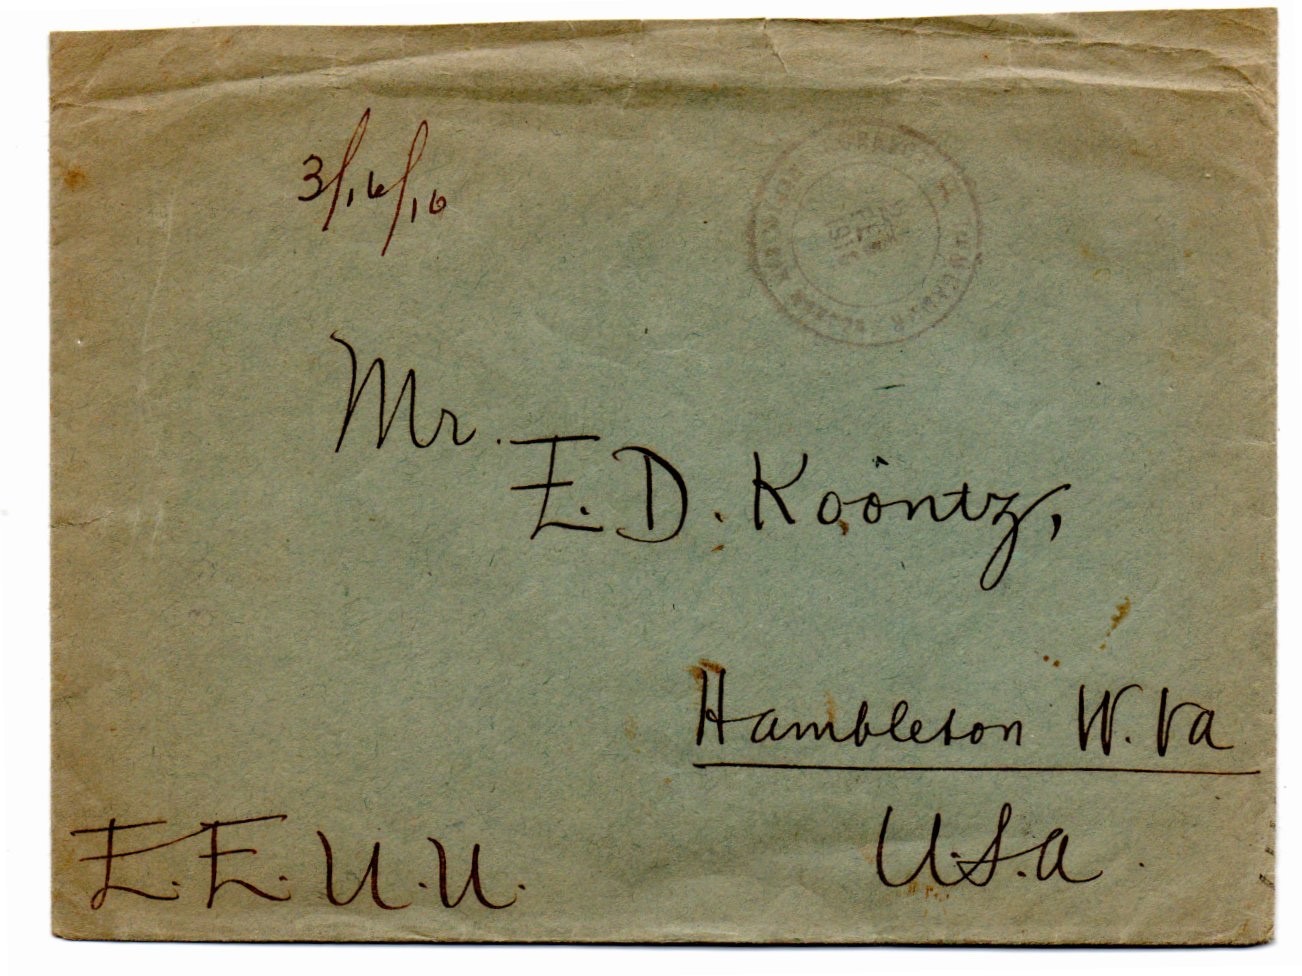 3/16/16
Mr.
E. D. Koontz,
Hambleton W. Va
U.S.A.
E.E.U.U.